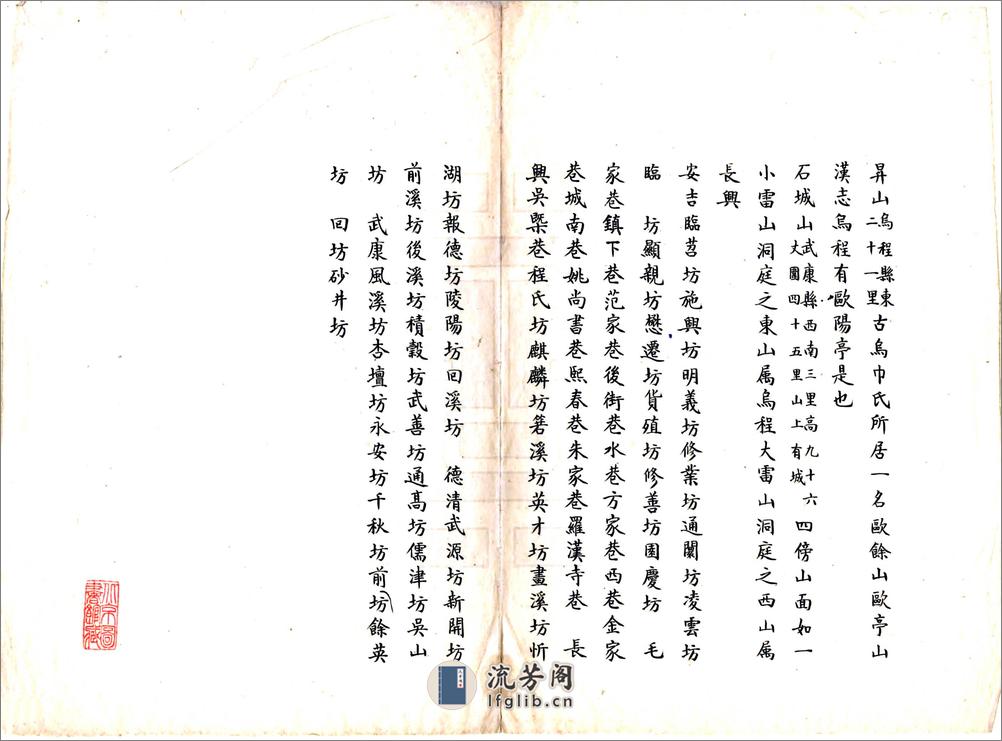 昇山烏程縣東二十一里古烏巾氏所居一名歐餘山歐亭山
漢志烏程有歐陽亭是也
石城山武康縣西南三里高九十六大圍四十五里山上有城四傍山面如一
小雷山洞庭之東山属烏程大雷山洞庭之西山属
長興
安吉臨苕坊施興坊明義坊修業坊通闤坊凌雲坊
臨 坊顯親坊懋遷坊貨殖坊修善坊園慶坊 毛
家巷鎮下巷范家巷後街巷水巷方家巷西巷金家
巷城南巷姚尚書巷熙春巷朱家巷羅漢寺巷 長
興吳槩巷程氏坊麒麟坊箬溪坊英才坊畫溪坊忻
湖坊報德坊陵陽坊回溪坊 德清武源坊新開坊
前溪坊後溪坊積穀坊武善坊通高坊儒津坊吳山
坊 武康風溪坊杏壇坊永安坊千秋坊前坊餘英
坊 回坊砂井坊
流芳阁
lfglib.cn